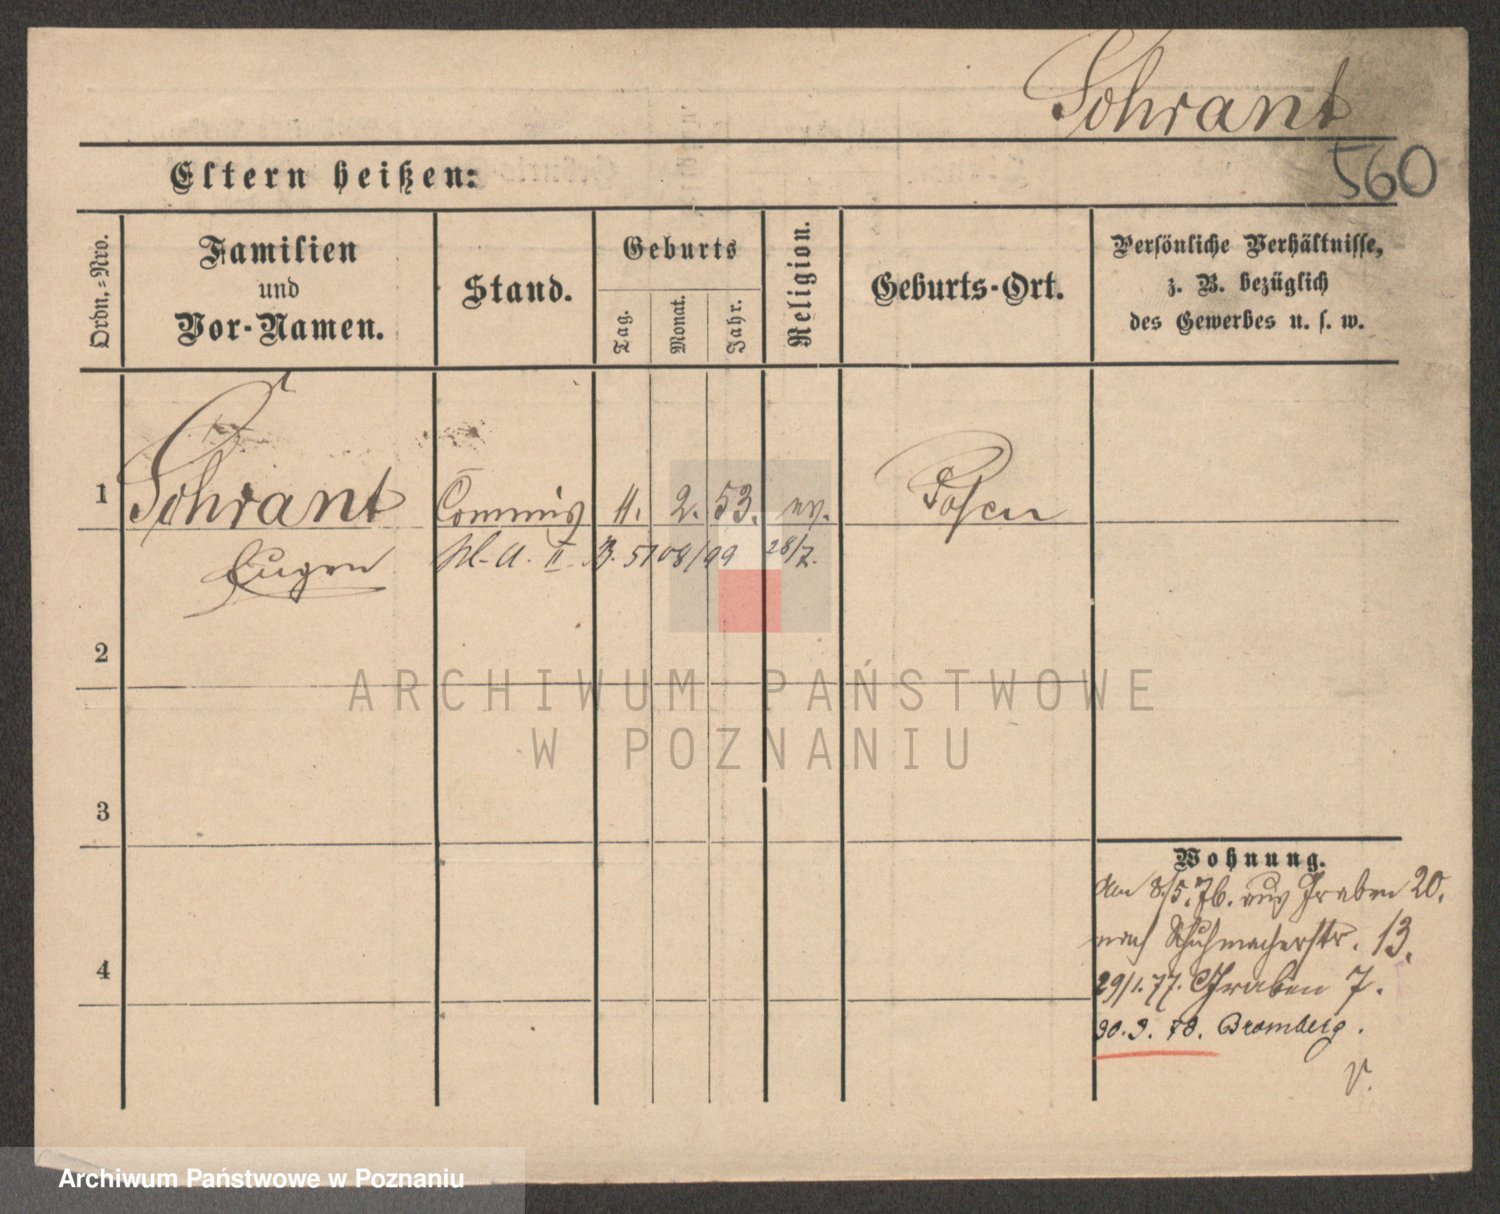 Schrant
560
Eltern heißen:
Ordn.-Nro.
Familien
und
Vor-Namen.
Stand.
Geburts
Tag.
Monat.
Jahr.
Religion.
Geburts-Ort.
Persönliche Verhältnisse,
z. B. bezüglich
des Gewerbes u. s. w.
1
Schrant Commis 11. 2. 53. ev. Posen
Eugen
II. B. 5108/99 28/7.
2
3
4
Wohnung.
8/5. 76. aus Graben 20.
nach Schuhmacherstr. 13.
29/1. 77. Graben 7.
30. 9. 78. Bromberg.
ARCHIWUM PAŃSTWOWE
W POZNANIU
Archiwum Państwowe w Poznaniu